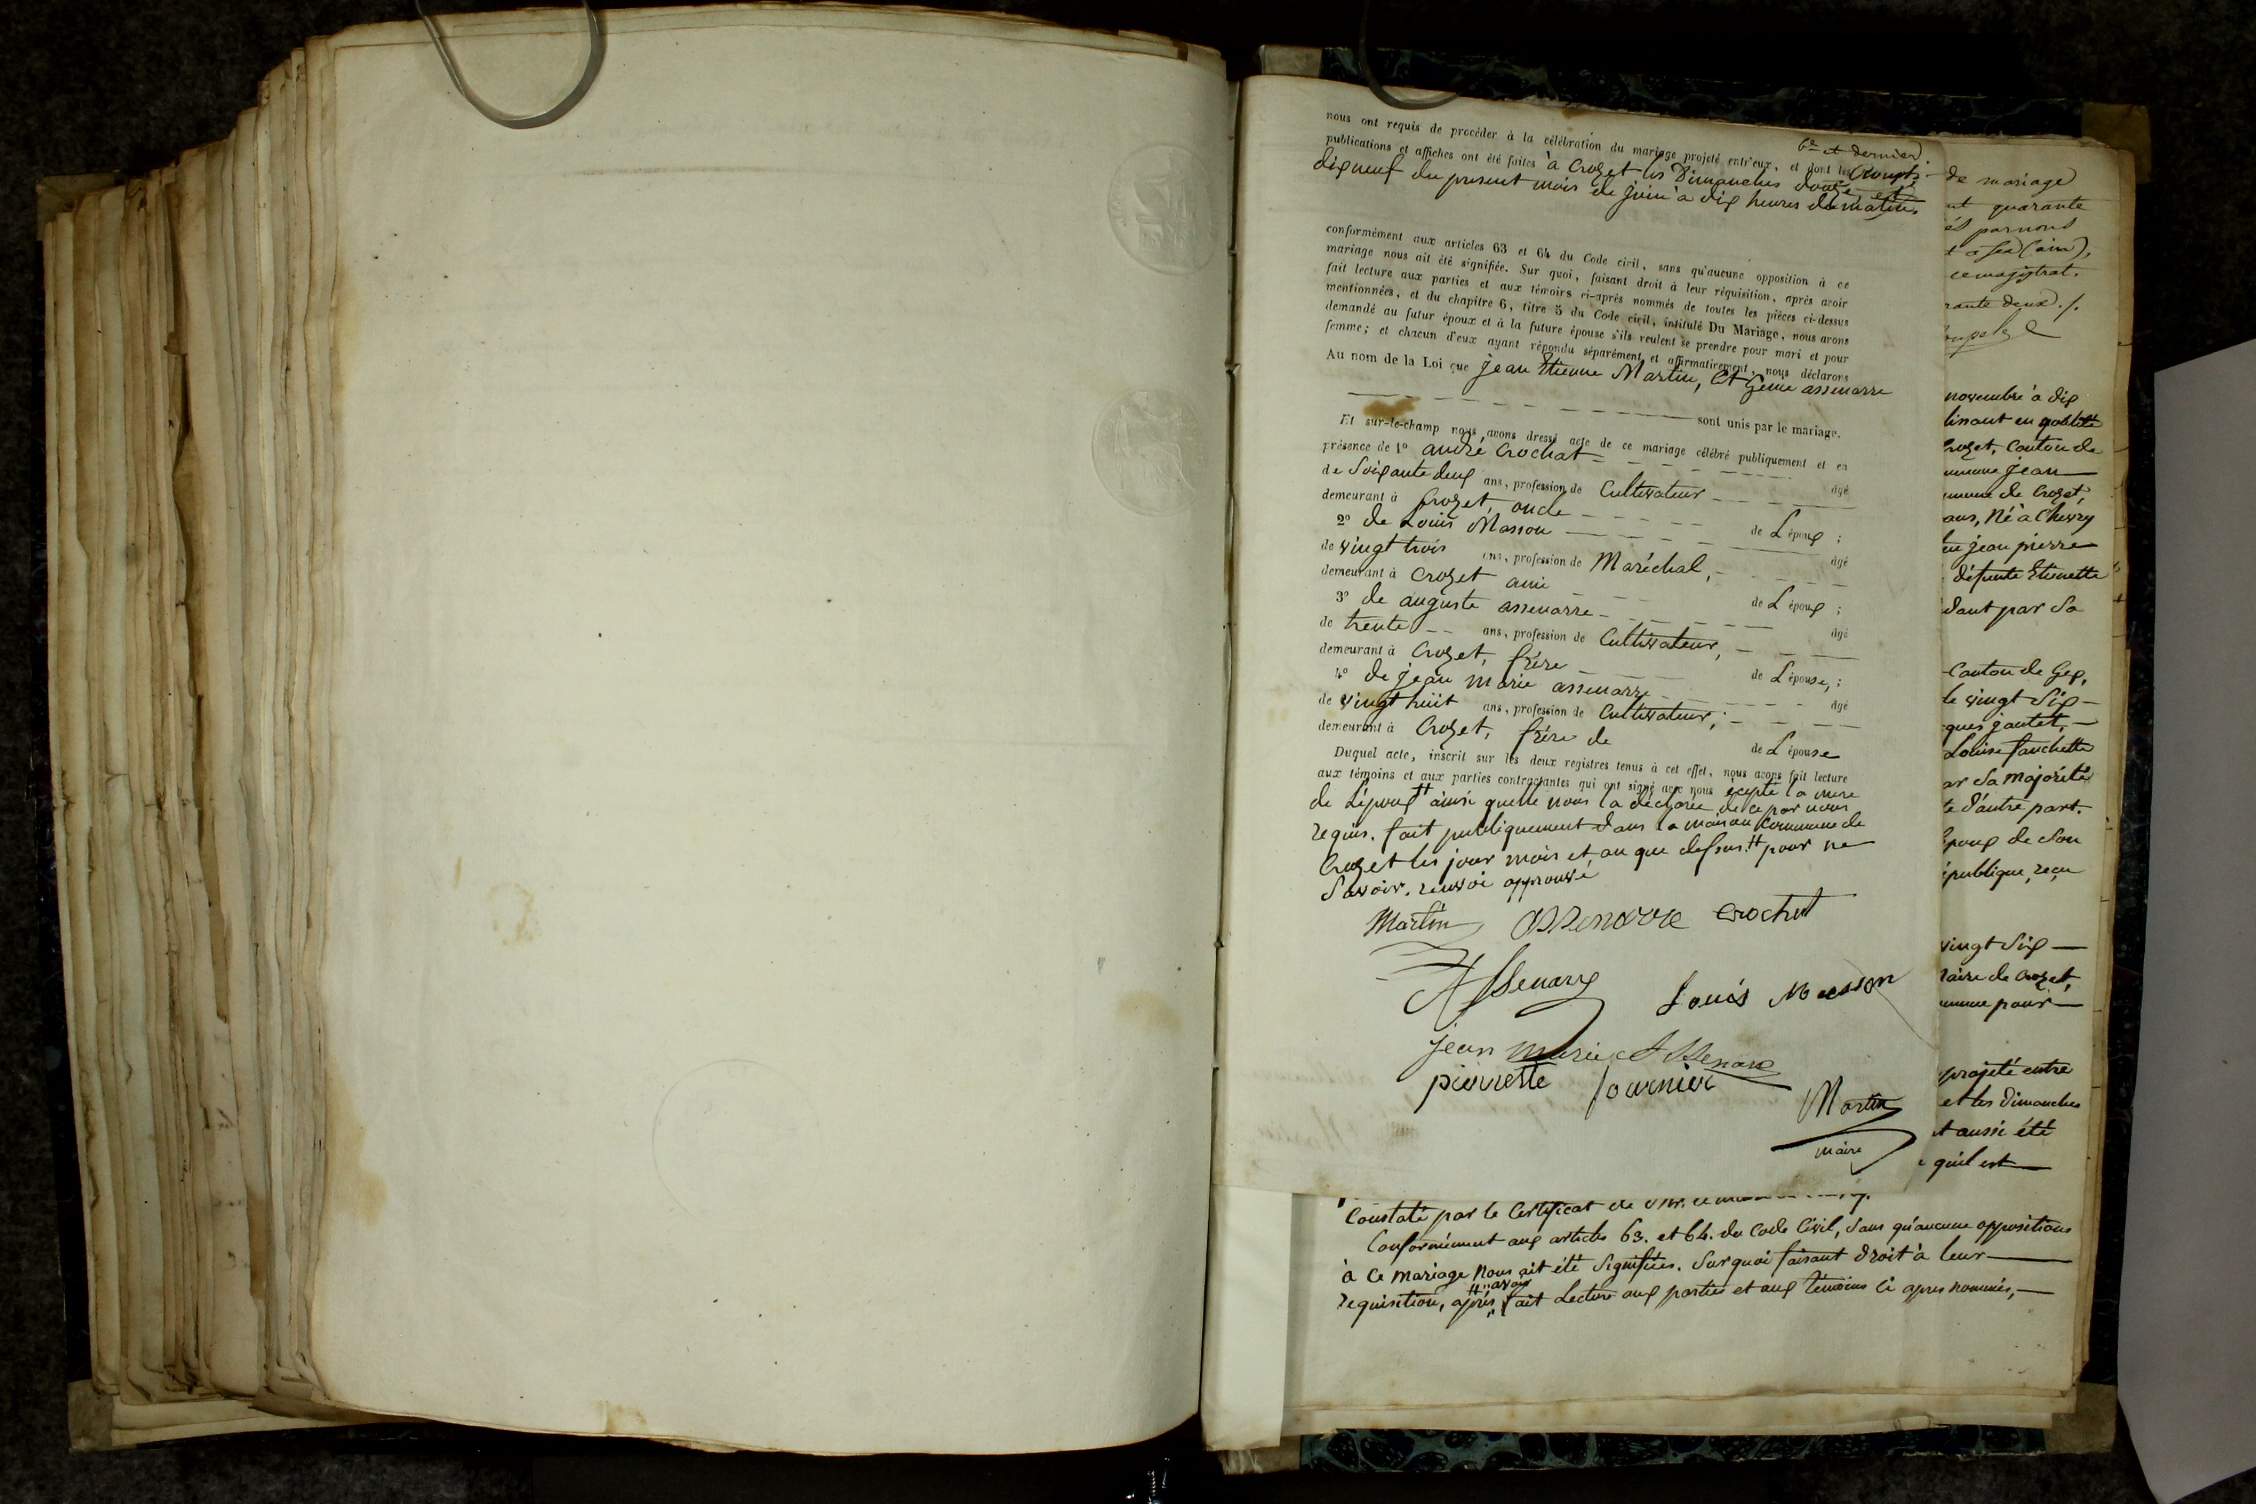 6e et dernier.
nous ont requis de procéder à la célébration du mariage projeté entr'eux, et dont les
publications et affiches ont été faites à Crozet les Dimanches douze et
dix neuf du present mois de juin à dix heures du matin
conformément aux articles 63 et 64 du Code civil, sans qu'aucune opposition à ce
mariage nous ait été signifiée. Sur quoi, faisant droit à leur réquisition, après avoir
fait lecture aux parties et aux témoins ci-après nommés de toutes les pièces ci-dessus
mentionnées, et du chapitre 6, titre 5 du Code civil, intitulé Du Mariage, nous avons
demandé au futur époux et à la future épouse s'ils veulent se prendre pour mari et pour
femme; et chacun d'eux ayant répondu séparément et affirmativement, nous déclarons
Au nom de la Loi que jean Etienne Martin, Et assenarre
sont unis par le mariage.
Et sur-le-champ nous avons dressé acte de ce mariage célébré publiquement et en
présence de 1° andré Crochat âgé
de Soixante deux ans, profession de Cultivateur
demeurant à Crozet, oncle de L'époux ;
2° de Louis Masson âgé
de vingt trois ans, profession de Maréchal,
demeurant à Crozet ami de L'époux ;
3° de auguste assenarre âgé
de trente ans, profession de Cultivateur,
demeurant à Crozet, frère de L'épouse, ;
4° de jean marie assenarre âgé
de vingt huit ans, profession de Cultivateur,
demeurant à Crozet, frère de de L'épouse
Duquel acte, inscrit sur les deux registres tenus à cet effet, nous avons fait lecture
aux témoins et aux parties contractantes qui ont signé avec nous écepté la mere
de L'époux ainsi quelle nous la déclarée de ce par nous
requis. fait publiquement dans la maison Commune de
Crozet les jour mois et an que dessus. pour ne
Savoir. renvoi approuvé
Martin assenarre crochat
Assenare Louis Masson
jean marie Assenare
pierrette fournier
Martin
maire
de mariage
quarante
par nous
ce magistrat.
rante deux ./.
novembre à dix
en qualité
Crozet, Canton de
jean
de Crozet,
ans, Né à Chevry
jean pierre
défunte Etienette
dant par Sa
Canton de Gex,
le vingt Six
jautet,
Louise fanchette
ar Sa Majorité
d'autre part.
époux de Son
république, reçu
vingt Six
maire de Crozet,
pour
projeté entre
et les Dimanches
et aussi été
qu'il est
Constaté par le Certificat de
Conformément aux articles 63. et 64. du Code Civil, Sans qu'aucune oppositions
à Ce mariage Nous ait été Signifiées. Sur quoi faisant droit à leur
requisition, après avoir fait Lecture aux parties et aux témoins ci apres nommés,